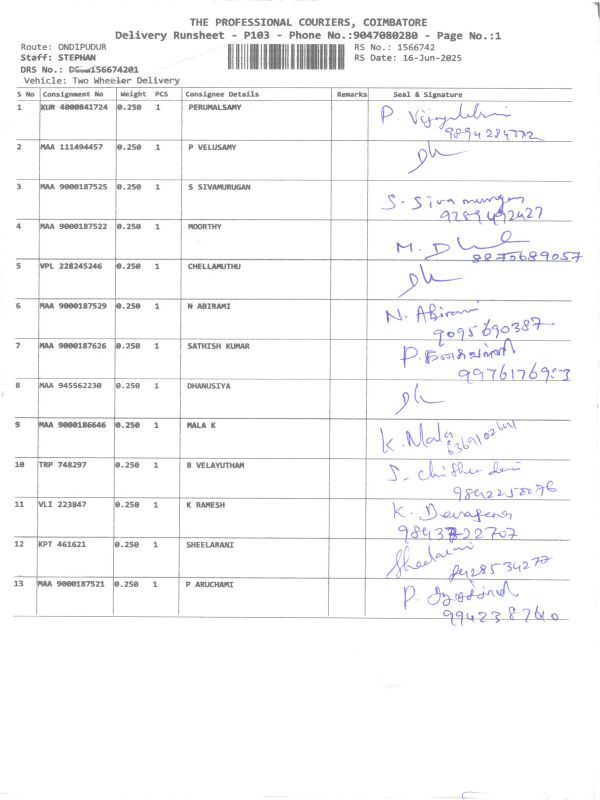 THE PROFESSIONAL COURIERS, COIMBATORE
Delivery Runsheet - P103 - Phone No.:9047080280 - Page No.:1
Route: ONDIPUDUR RS No.: 1566742
Staff: STEPHAN RS Date: 16-Jun-2025
DRS No.:
Vehicle: Two Wheeler Delivery
S No Consignment No Weight PCS Consignee Details Remarks Seal & Signature
1 KUR 4000841724 0.250 1 PERUMALSAMY P
9894284772
2 MAA 111494457 0.250 1 P VELUSAMY
3 MAA 9000187525 0.250 1 S SIVAMURUGAN S. Sivamurugan
4 MAA 9000187522 0.250 1 MOORTHY M.
8870689057
5 VPL 228245246 0.250 1 CHELLAMUTHU
6 MAA 9000187529 0.250 1 N ABIRAMI N. Abirami
9095690387
7 MAA 9000187626 0.250 1 SATHISH KUMAR P.
8 MAA 945562230 0.250 1 DHANUSIYA
9 MAA 9000186646 0.250 1 MALA K K. Mala
10 TRP 748297 0.250 1 B VELAYUTHAM S.
9842258076
11 VLI 223847 0.250 1 K RAMESH K.
12 KPT 461621 0.250 1 SHEELARANI Sheelarani
13 MAA 9000187521 0.250 1 P ARUCHAMI P.
9942387610